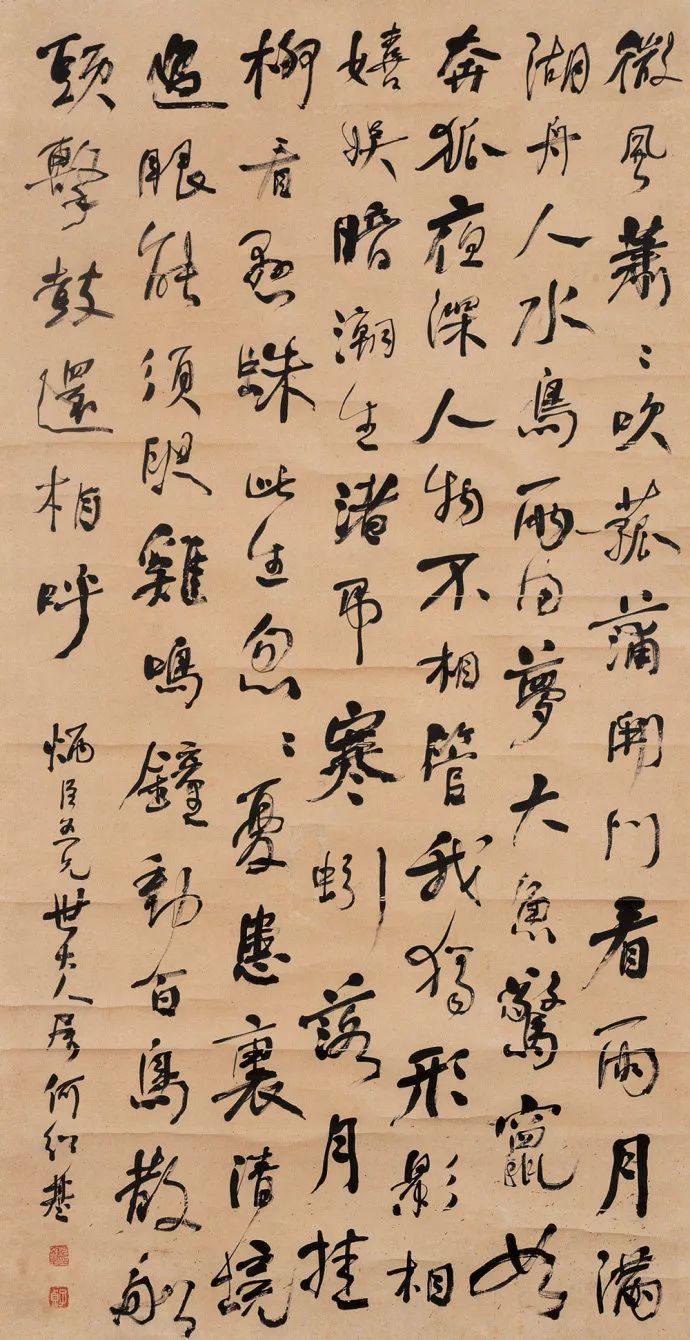 微風蕭〻吹菰蒲開門看雨月滿
湖舟人水鳥兩同夢大魚驚竄如
奔狐夜深人物不相管我獨形影相
嬉娛暗潮生渚弔寒蚓落月挂
柳看懸蛛此生忽〻憂患裏清境
過眼能須臾雞鳴鐘動百鳥散船
頭擊鼓還相呼
兄世大人屬何紹基